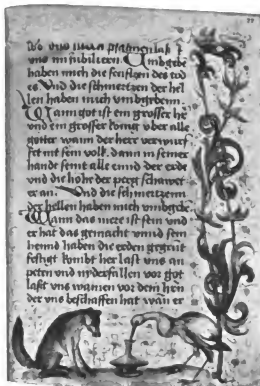 vnd in den psalmen laß
vns im jubilieren. Umbgebe
haben mich die seufftzen des tod
es. Vnd die schmertzen der hel
len haben mich vmbgebenn.
Wann got ist ein grosser he
vnd ein grosser könig vber alle
götter wann der herr verwürf
fet nit sein volk. dann in seiner
hande seint alle ennd der erde
vnd die höhe der perg schawet
er an. Vnd die schmertzenn
der hellen haben mich vmbgebe
Wann das mere ist sein vnd
er hat das gemacht vnnd sein
hennd haben die erden gegrüt
festigt kombt her last vns an
peten vnd nyderfallen vor got
laßt vns wainen vor dem hern
der vns beschaffen hat wan er